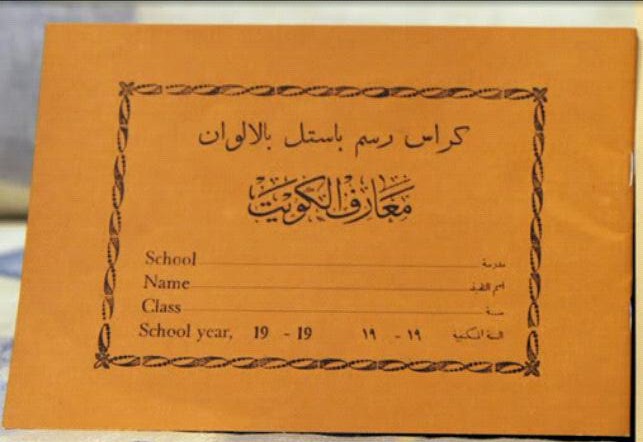 كراس رسم باستل بالالوان
معارف الكويت
School مدرسة
Name اسم التلميذ
Class سنة
School year, 19 - 19 ١٩ - ١٩ السنة المكتبية